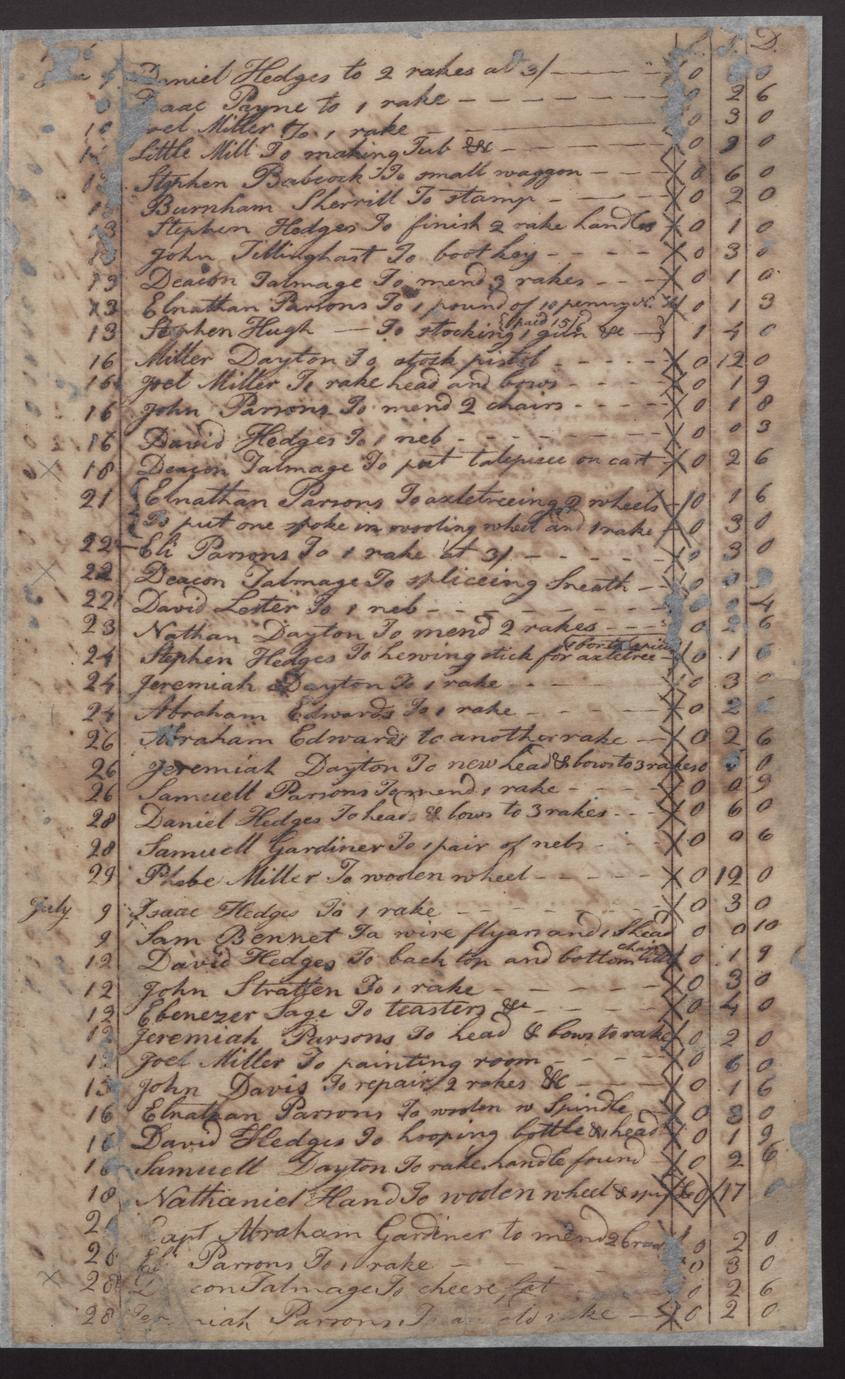 L. S. D.
Daniel Hedges to 2 rakes at 3/ 0 0
Isaac Payne to 1 rake 0 2 6
10 Joel Miller To 1 rake 0 3 0
Little Mill To making Tub &c 0 0
Stephen Babcock To small waggon 6 0
Burnham Sherrill To stamp 0 2 0
13 Stephen Hedges To finish 2 rake handles 0 1 0
13 John Tillinghast To boot key 0 3 0
13 Deacon Talmage To mend 3 rakes 0 1 0
13 Elnathan Parsons To 1 pound of 10 penny 0 1 3
13 Stephen Hugh To stocking 1 gun &c 1 4 0
paid 15/
16 Miller Dayton To stock pistol 0 12 0
16 Joel Miller To rake head and bows 0 1 9
16 John Parsons To mend 2 chairs 0 1 8
16 David Hedges To 1 neb 0 0 3
18 Deacon Talmage To put talepiece on cart 0 2 6
21 Elnathan Parsons To axletreeing 2 wheels 0 1 6
To put one spoke in wooling wheel and 1 rake 0 3 0
22 Eli Parsons To 1 rake at 3/ 0 3 0
22 Deacon Talmage To spliceing Sneath 0
22 David Lester To 1 neb 0 4
23 Nathan Dayton To mend 2 rakes 0 2 6
24 Stephen Hedges To hewing stick for axletree 0 1 6
24 Jeremiah Dayton To 1 rake 0 3 0
24 Abraham Edwards To 1 rake 0 2
26 Abraham Edwards to another rake 0 2 6
26 Jeremiah Dayton To new head & bows to 3 rakes 0 0
26 Samuell Parsons To mend 1 rake 0 0 9
28 Daniel Hedges To heads & bows to 3 rakes 0 6 0
28 Samuell Gardiner To 1 pair of nebs 0 0 6
29 Phebe Miller To woolen wheel 0 12 0
July 9 Isaac Hedges To 1 rake 0 3 0
9 Sam Bennet To wire flyars and 1 head 0 0 10
12 David Hedges To back top and bottom chair 0 1 9
12 John Stratten To 1 rake 0 3 0
12 Ebenezer Sage To teasters &c 0 4 0
12 Jeremiah Parsons To head & bows to rake 0 2 0
Joel Miller To painting room 0 6 0
15 John Davis To repair 2 rakes &c 0 1 6
16 Elnathan Parsons To woolen w Spindle 0 3 0
16 David Hedges To hooping bottle & head 0 1 9
16 Samuell Dayton To rake handle found 0 2 6
18 Nathaniel Hand To woolen wheel & 0 17
Capt Abraham Gardiner to mend 2 0 2 0
Eli Parsons To 1 rake 0 3 0
28 Deacon Talmage To cheese fat 0 2 6
28 Jeremiah Parsons To an old rake 0 2 0